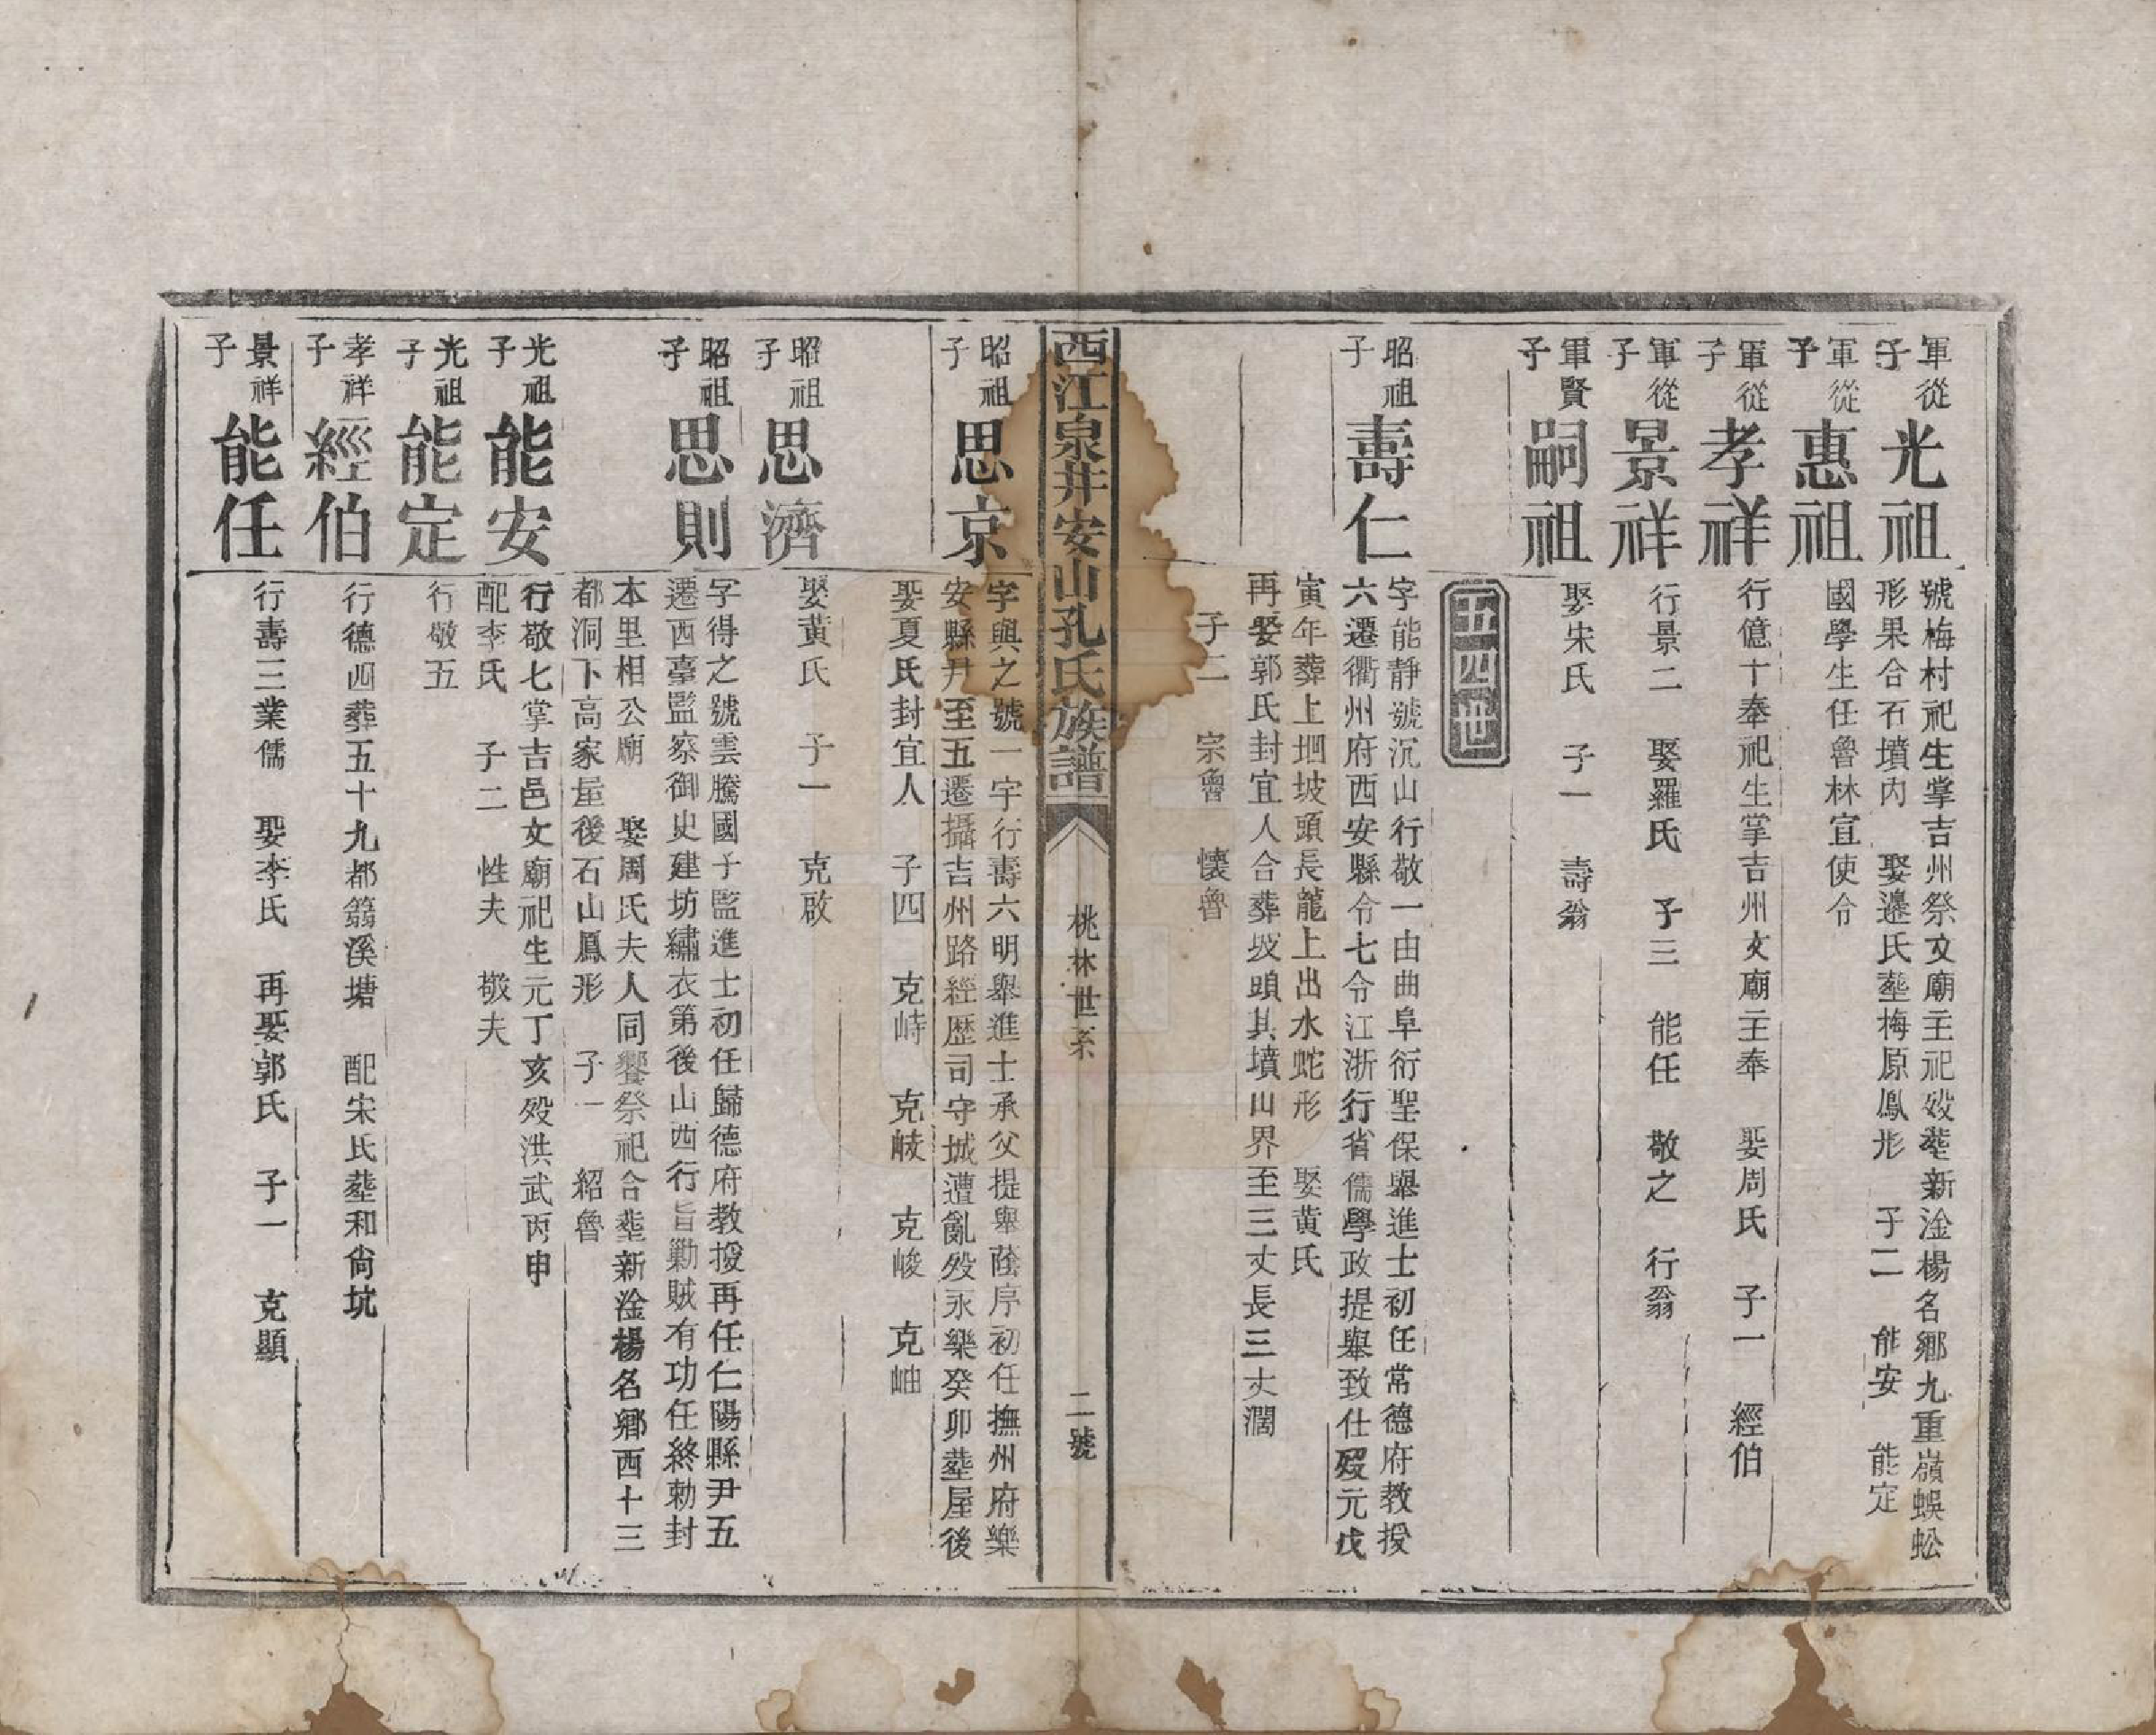 軍從子 光祖 號梅村祀生掌吉州祭文廟主祀歿塟新淦楊名鄉九重嶺蜈蚣
形果合石墳內 娶邊氏塟梅原鳳形 子二 能安 能定
軍從子 惠祖 國學生任魯林宜使令
軍從子 孝祥 行億十奉祀生掌吉州文廟主奉 娶周氏 子一 經伯
軍從子 景祥 行景二 娶羅氏 子三 能任 敬之 行翁
軍賢子 嗣祖 娶宋氏 子一 壽翁
五四世
昭祖子 壽仁 字能靜號沉山行敬一由曲阜衍聖保舉進士初任常德府教授
六遷衢州府西安縣令七令江浙行省儒學政提舉致仕歿元戊
寅年葬上垇坡頭長龍上出水蛇形 娶黃氏
再娶郭氏封宜人合葬坡頭其墳山界至三丈長三丈濶
子二 宗魯 懷魯
西江泉井安山孔氏族譜 桃林世系 二號
昭祖子 思京 字與之號一宇行壽六明舉進士承父提舉蔭序初任撫州府樂
安縣尹至五遷攝吉州路經歷司守城遭亂歿永樂癸卯塟屋後
娶夏氏封宜人 子四 克峙 克崚 克峻 克岫
昭祖子 思濟 娶黃氏 子一 克啟
昭祖子 思則 字得之號雲騰國子監進士初任歸德府教授再任仁陽縣尹五
遷西臺監察御史建坊繡衣第後山西行旨勦賊有功任終勅封
本里相公廟 娶周氏夫人同饗祭祀合塟新淦楊名鄉西十三
都洞下高家屋後石山鳳形 子一 紹魯
光祖子 能安 行敬七掌吉邑文廟祀生元丁亥歿洪武丙申
配李氏 子二 性夫 敬夫
光祖子 能定 行敬五
孝祥子 經伯 行德四葬五十九都蒻溪塘 配宋氏塟和尙坑
景祥子 能任 行壽三業儒 娶李氏 再娶郭氏 子一 克顯